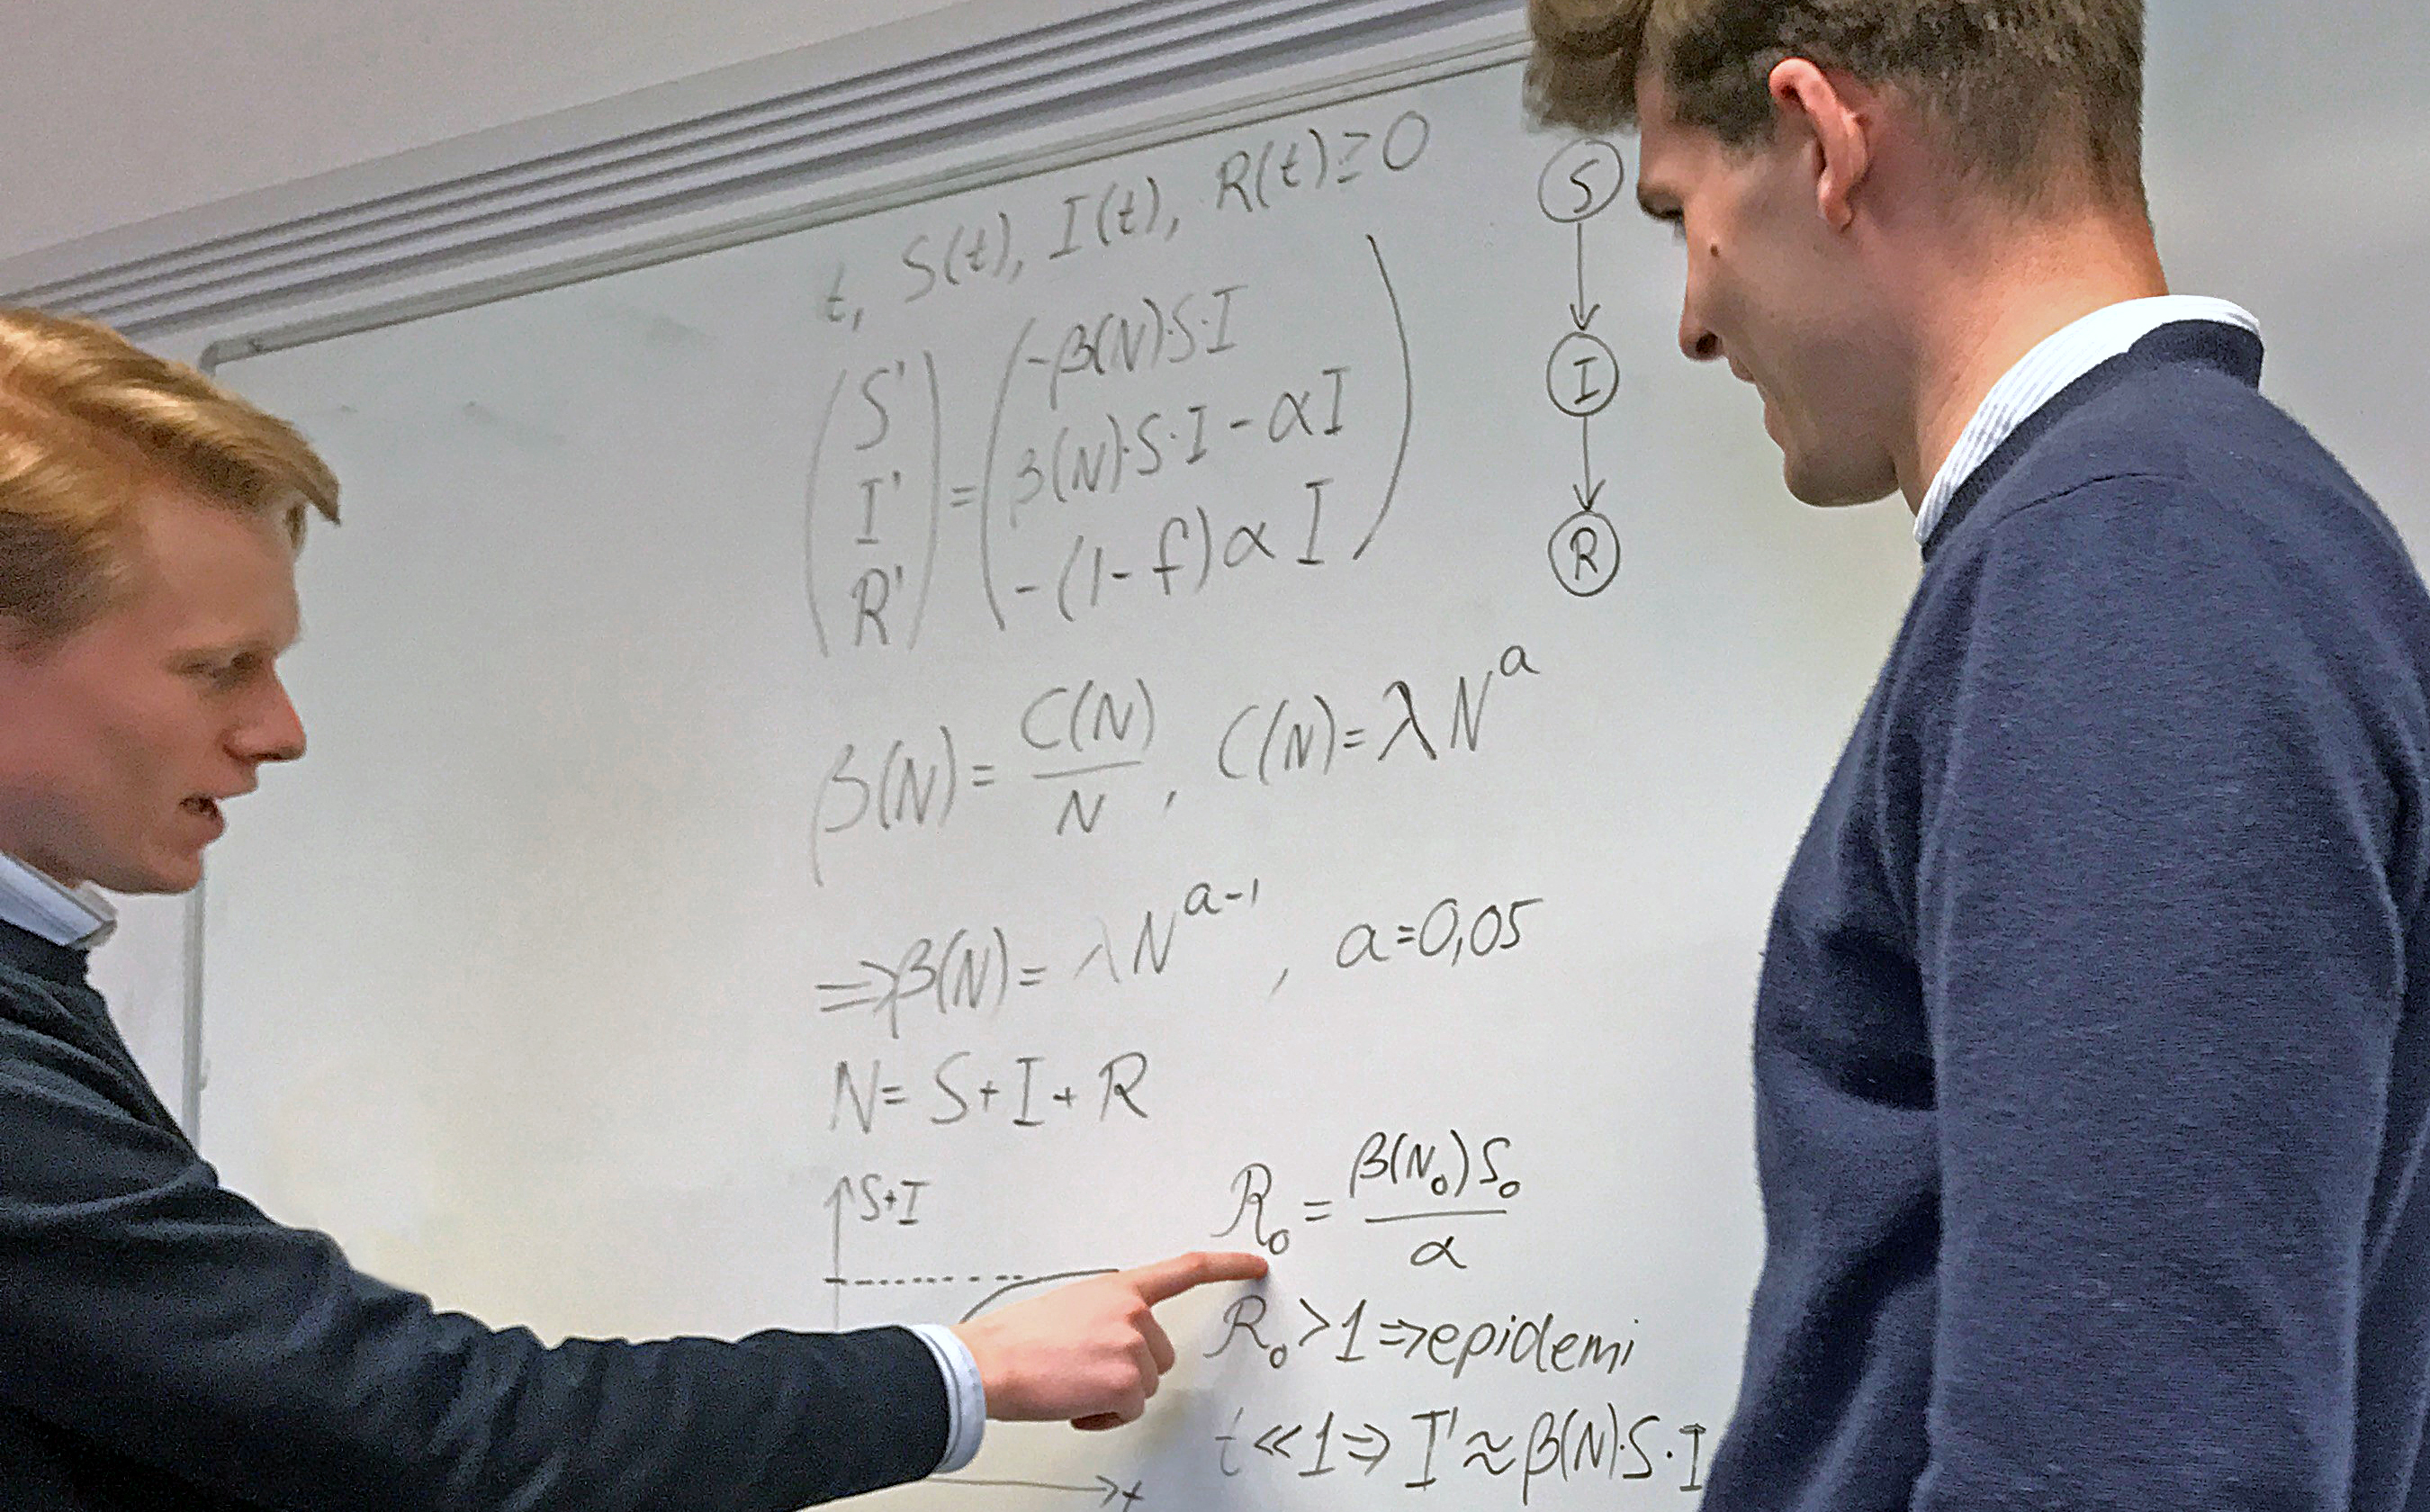 t, S(t), I(t), R(t) ≥ 0
(S') = (-β(N)·S·I)
(I') = (β(N)·S·I - αI)
(R') = (-(1-f)αI)
S
I
R
β(N) = C(N)/N , C(N) = λN^a
⇒ β(N) = λN^(a-1) , a = 0,05
N = S + I + R
S+I
t
R₀ = β(N₀)S₀/α
R₀ > 1 ⇒ epidemi
t << 1 ⇒ I' ≈ β(N)·S·I